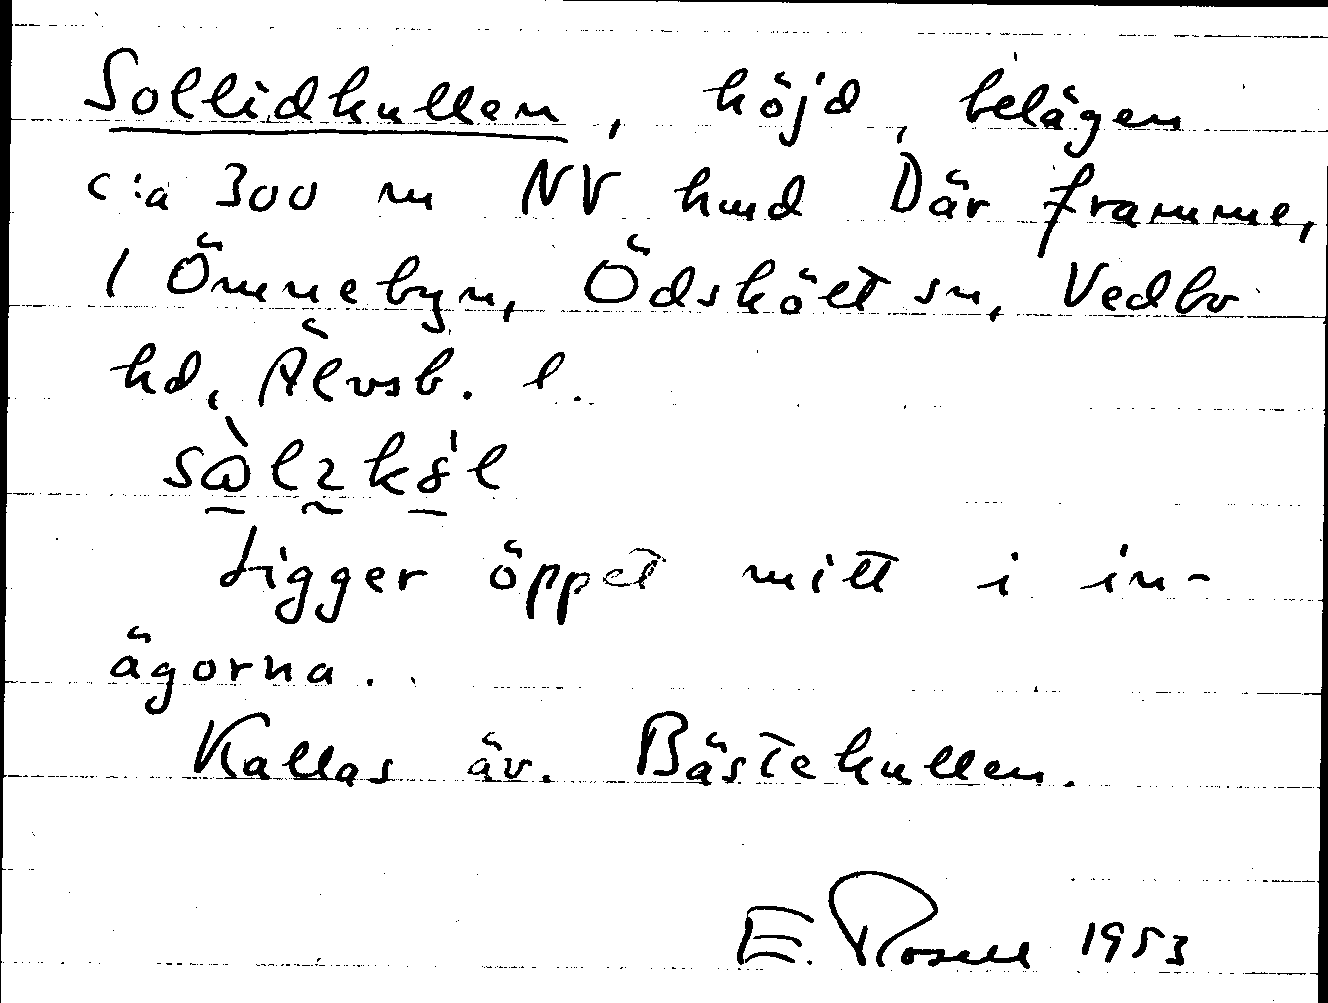 Sollidkullen, höjd, belägen
c:a 300 m NV hmd Där framme,
1 Ömnebyn, Ödskölt sn, Vedbo
hd, Älvsb. l.
Ligger öppet mitt i in-
ägorna.
Kallas äv. Bästekullen.
E. Rosell 1953